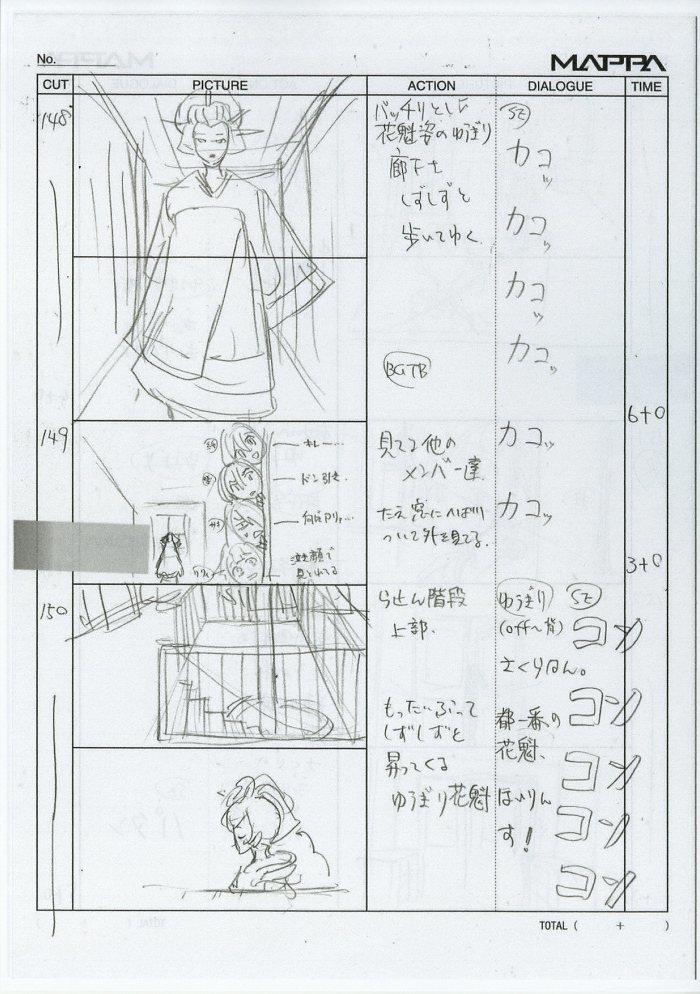 No.
MAPPA
CUT
PICTURE
ACTION
DIALOGUE
TIME
148
バッチリとした
花魁姿のゆうぎり
廊下を
しずしずと
歩いてゆく
BGTB
SE
カコッ
カコッ
カコッ
カコッ
6+0
149
キレー…
ドン引き.
泣き顔で
見とれてる
見てる他の
メンバー達.
たえ窓にへばり
ついて外を見てる.
カコッ
カコッ
3+0
150
らせん階段
上部.
もったいぶって
しずしずと
昇ってくる
ゆうぎり花魁
ゆうぎり
SE
(off〜背)
さくらはん。
都一番の
花魁、
す!
コンッ
コンッ
コンッ
コンッ
コンッ
TOTAL ( + )